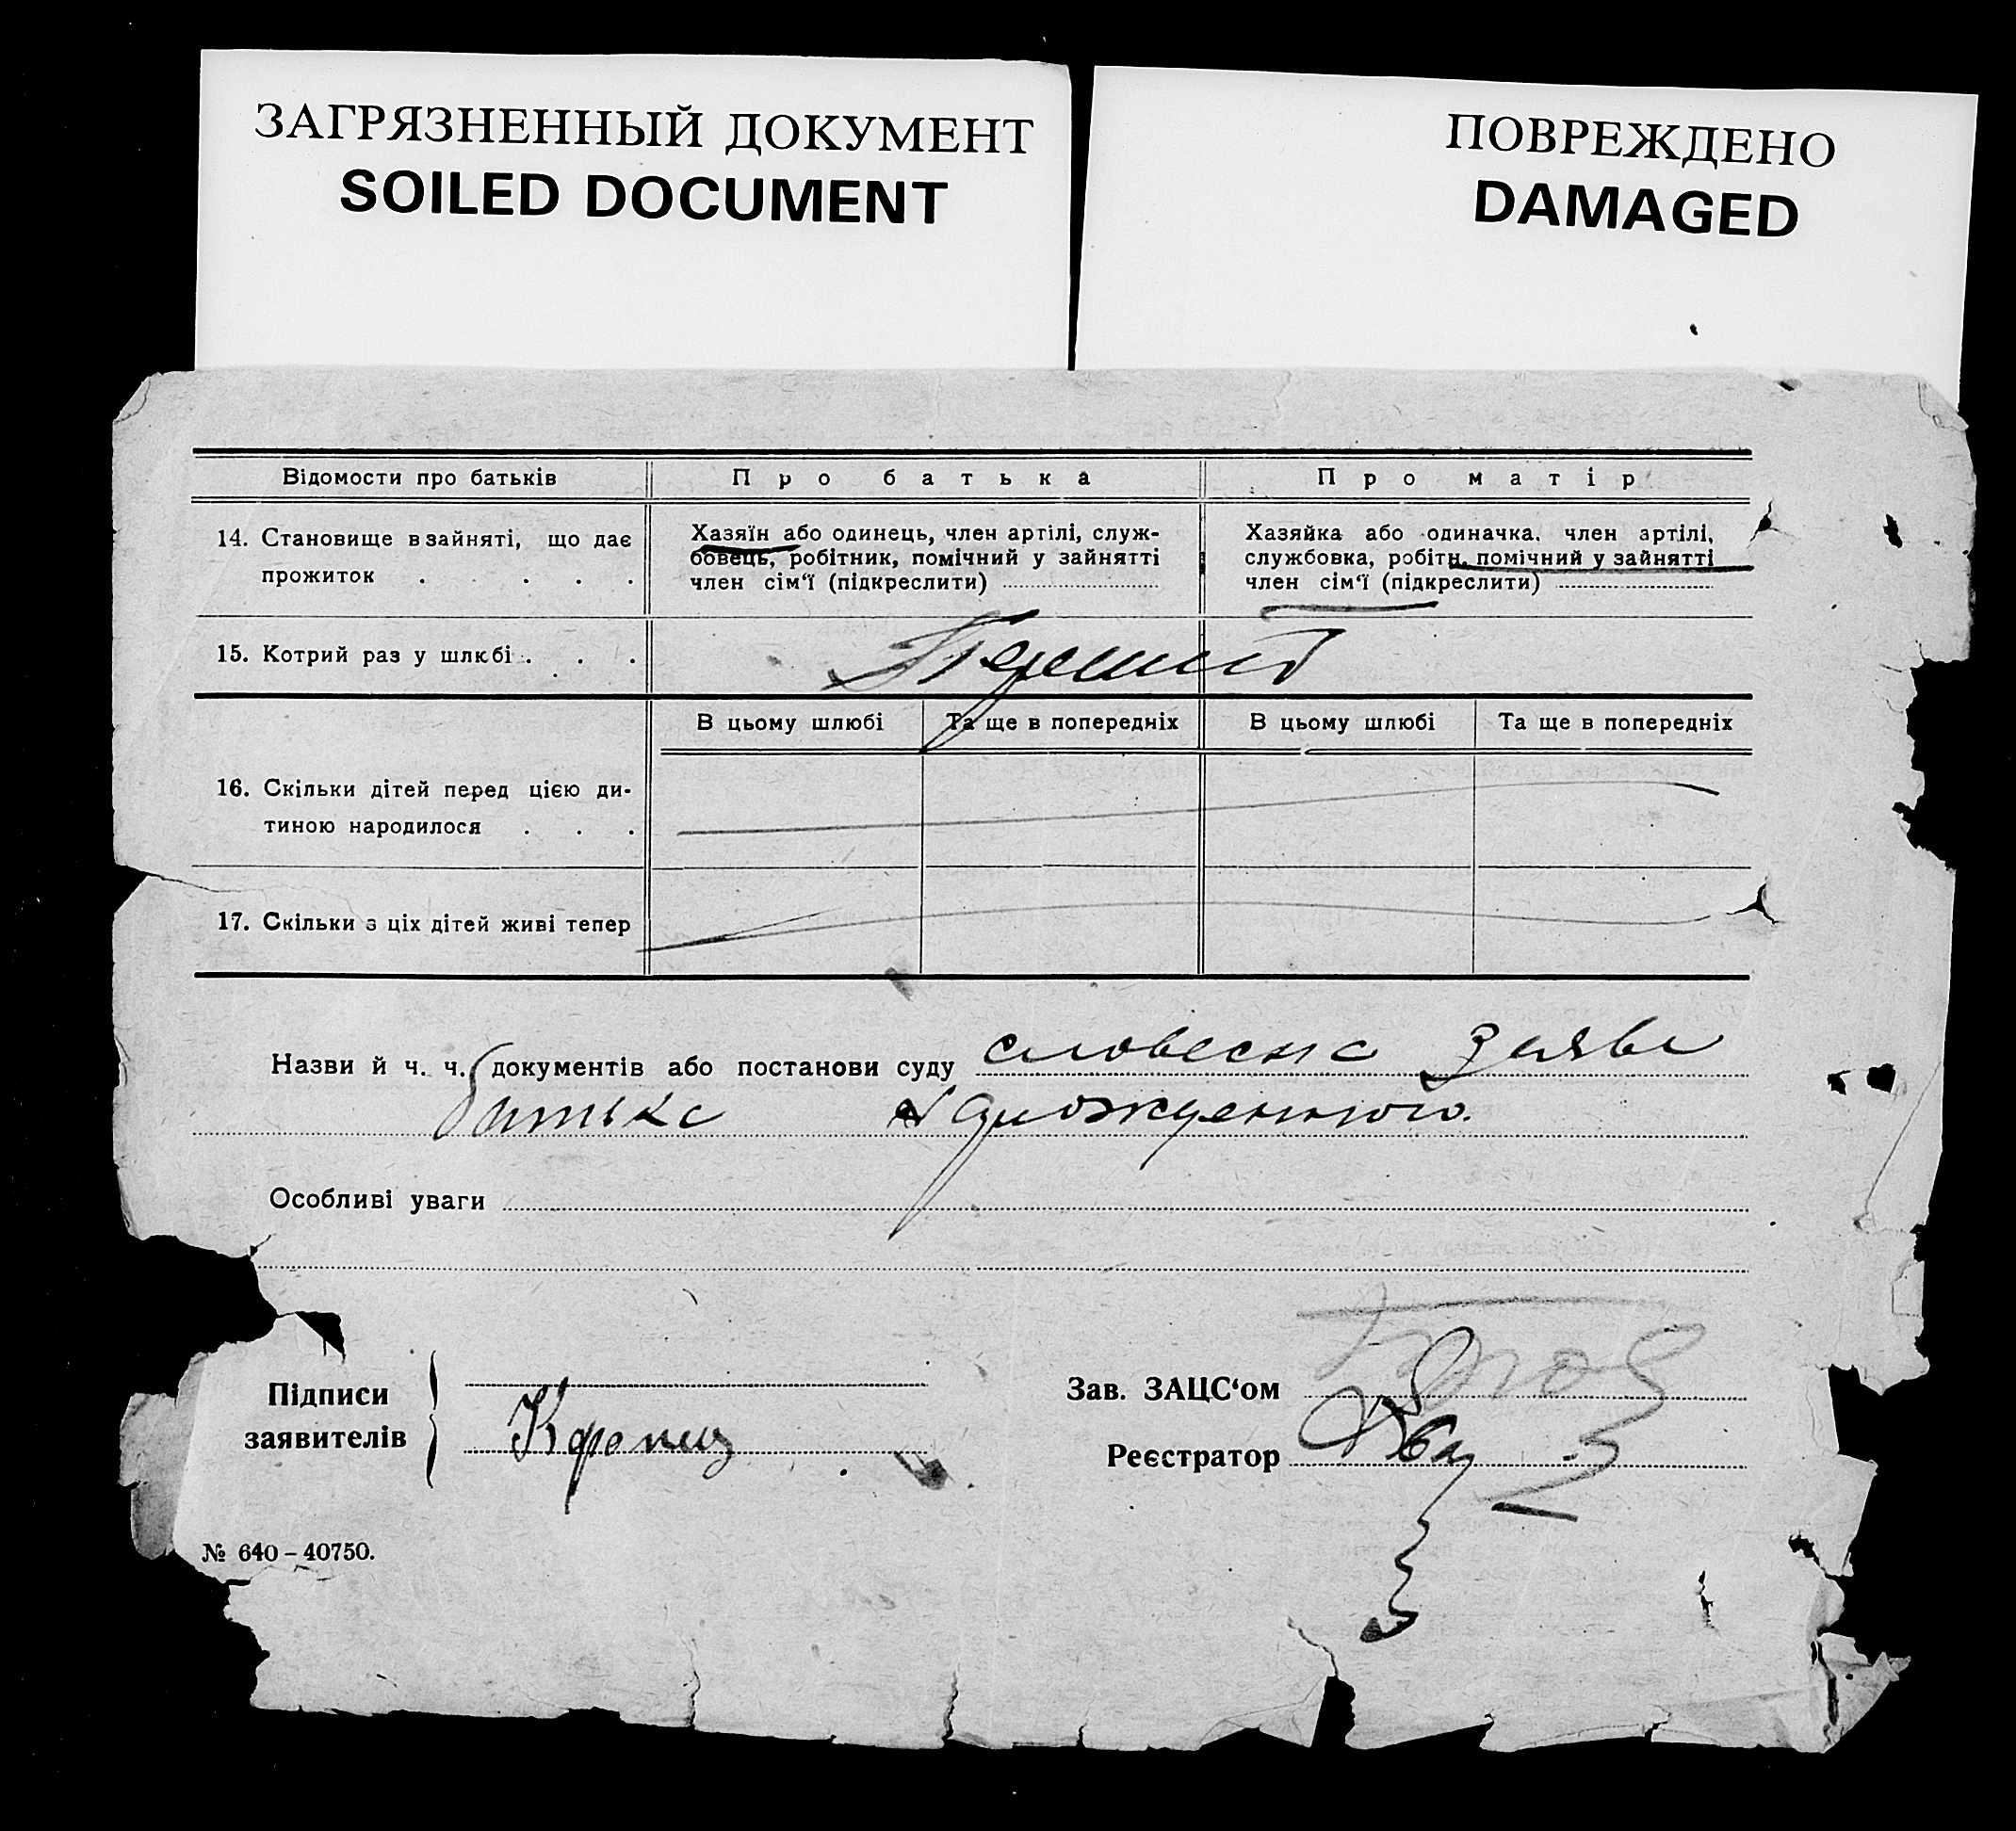 ЗАГРЯЗНЕННЫЙ ДОКУМЕНТ
SOILED DOCUMENT
ПОВРЕЖДЕНО
DAMAGED
Відомости про батьків
Про батька
Про матір
14. Становище в зайняті, що дає
прожиток . . . . .
Хазяїн або одинець, член артілі, служ-
бовець, робітник, помічний у зайнятті
член сім‘ї (підкреслити)
Хазяйка або одиначка, член артілі,
службовка, робітн. помічний у зайнятті
член сім‘ї (підкреслити)
15. Котрий раз у шлюбі . . .
В цьому шлюбі
Та ще в попередніх
В цьому шлюбі
Та ще в попередніх
16. Скільки дітей перед цією ди-
тиною народилося . . .
17. Скільки з ціх дітей живі тепер
Назви й ч. ч. документів або постанови суду словесна заява
батька
Особливі уваги
Підписи
заявителів
Зав. ЗАЦС‘ом
Реєстратор
№ 640 – 40750.